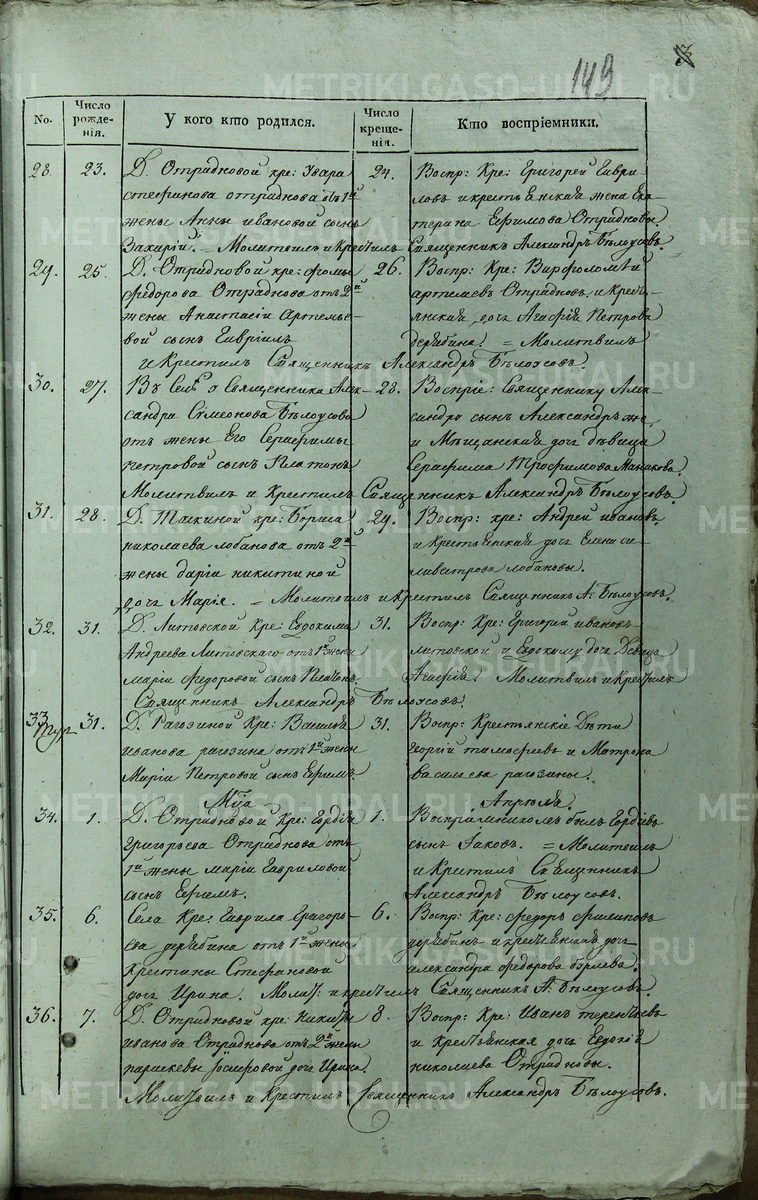 149
No. Число рожденія. У кого кто родился. Число крещенія. Кто воспріемники.
28. 23. Д. Отрадновой кре: Увара 24. Воспр: Кре: Григорей Гаври-
стефанова отраднова отъ 1й ловъ и крестьянская жена Ека-
жены Анны ивановой сынъ терина Ефимова Отрадновы.
Захарій. = Молитвилъ и Крестилъ Священникъ Александръ Бѣлоусовъ.
29. 25. Д. Отрадновой кре: фомы 26. Воспр: Кре: Варфоломей
федорова Отраднова отъ 2й артемьевъ Отрадновъ, и Кресть-
жены Анастасіи Артемье- янская дочь Агафія Петрова
вой сынъ Гавріилъ дерябина. = Молитвилъ
и Крестилъ Священникъ Александръ Бѣлоусовъ.
30. 27. Въ Селѣ у Священника Алек- 28. Воспріе: Священнику Алек-
сандра Симеонова Бѣлоусова сандра сынъ Александръ же,
отъ жены Его Серафимы и Мѣщанская дочь дѣвица
петровой сынъ Платонъ Серафима Трофимова
Молитвилъ и Крестилъ Священникъ Александръ Бѣлоусовъ.
31. 28. Д. Таскиной кре: Бориса 29. Воспр: кре: Андрей ивановъ
николаева лобанова отъ 2й и Крестьянская дочь Елена си-
жены даріи никитиной ливестрова лобановы.
дочь Марія. = Молитвилъ и крестилъ Священникъ А: Бѣлоусовъ.
32. 31. Д. Литовской Кре: Евдокима 31. Воспр: Кре: Григорей ивановъ
Андреева Литовскаго отъ 1й жены литовской и Евдокиму дочь Девица
маріи федоровой сынъ Платонъ. Агафія. Молитвилъ и Крестилъ
Священникъ Александръ Бѣлоусовъ.
33. 31. Д. Рагозиной Кре: Василья 31. Воспр: Крестьянскіе Дѣти
иванова рагозина отъ 1й жены георгій тимофеевъ и Матрона
Маріи Петровой сынъ Ефимъ. васильева рагозины.
Мца Апрѣля.
34. 1. Д. Отрадновой Кре: Гордѣя 1. Воспріемникомъ былъ Гордѣевъ
григорьева Отраднова отъ сынъ Іаковъ. = Молитвилъ
1й жены маріи Гавриловой и Крестилъ Священникъ
сынъ Ефремъ. Александръ Бѣлоусовъ.
35. 6. Села Кре: Гаврила Григорь- 6. Воспр: Кре: федоръ филиповъ
ева дерябина отъ 1й жены дерябинъ и крестьянская дочь
Крестины Стефановой александра федорова
дочь Ирина. Молит: и крестилъ Священникъ А: Бѣлоусовъ.
36. 7. Д. Отрадновой кре: Никиты 8. Воспр: Кре: Иванъ терентьевъ
иванова Отраднова отъ 2й жены и Крестьянская дочь Евдокія
параскевы дочь Ирина. николаева Отрадновы.
Молитвилъ и Крестилъ Священникъ Александръ Бѣлоусовъ.
METRIKI.GASO-URAL.RU